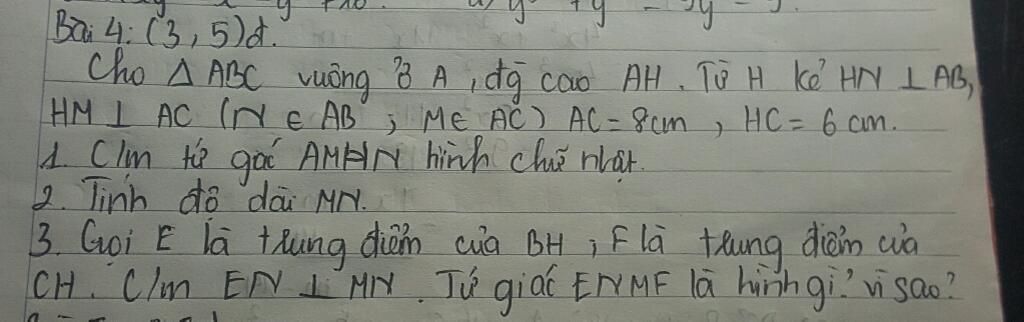 Bài 4: (3,5)đ.
Cho Δ ABC vuông ở A, đg cao AH. Từ H kẻ HN ⊥ AB,
HM ⊥ AC (N ∈ AB ; M ∈ AC) AC = 8cm, HC = 6 cm.
1. C/m tứ giác AMHN hình chữ nhật.
2. Tính độ dài MN.
3. Gọi E là trung điểm của BH, F là trung điểm của
CH. C/m EN ⊥ MN. Tứ giác ENMF là hình gì? vì sao?